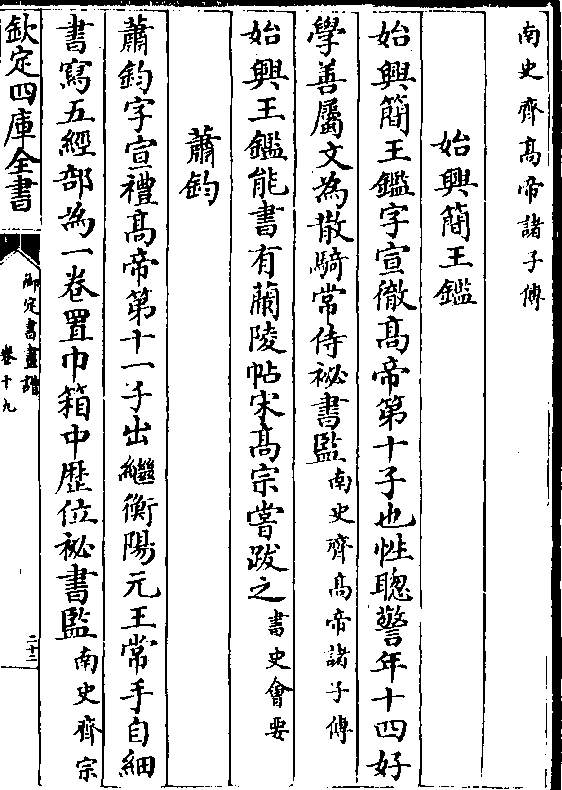 南史齊髙帝諸子傳
始興簡王鑑
始興簡王鑑字宣徹髙帝第十子也性聰警年十四好
學善屬文為散騎常侍祕書監南史齊髙帝諸子傳
始興王鑑能書有蘭陵帖宋髙宗嘗跋之書史會要
蕭鈞
蕭鈞字宣禮髙帝第十一子出繼衡陽元王常手自細
書寫五經部為一卷置巾箱中歴位祕書監南史齊宗
欽定四庫全書
御定書畫譜
卷十九
二十二